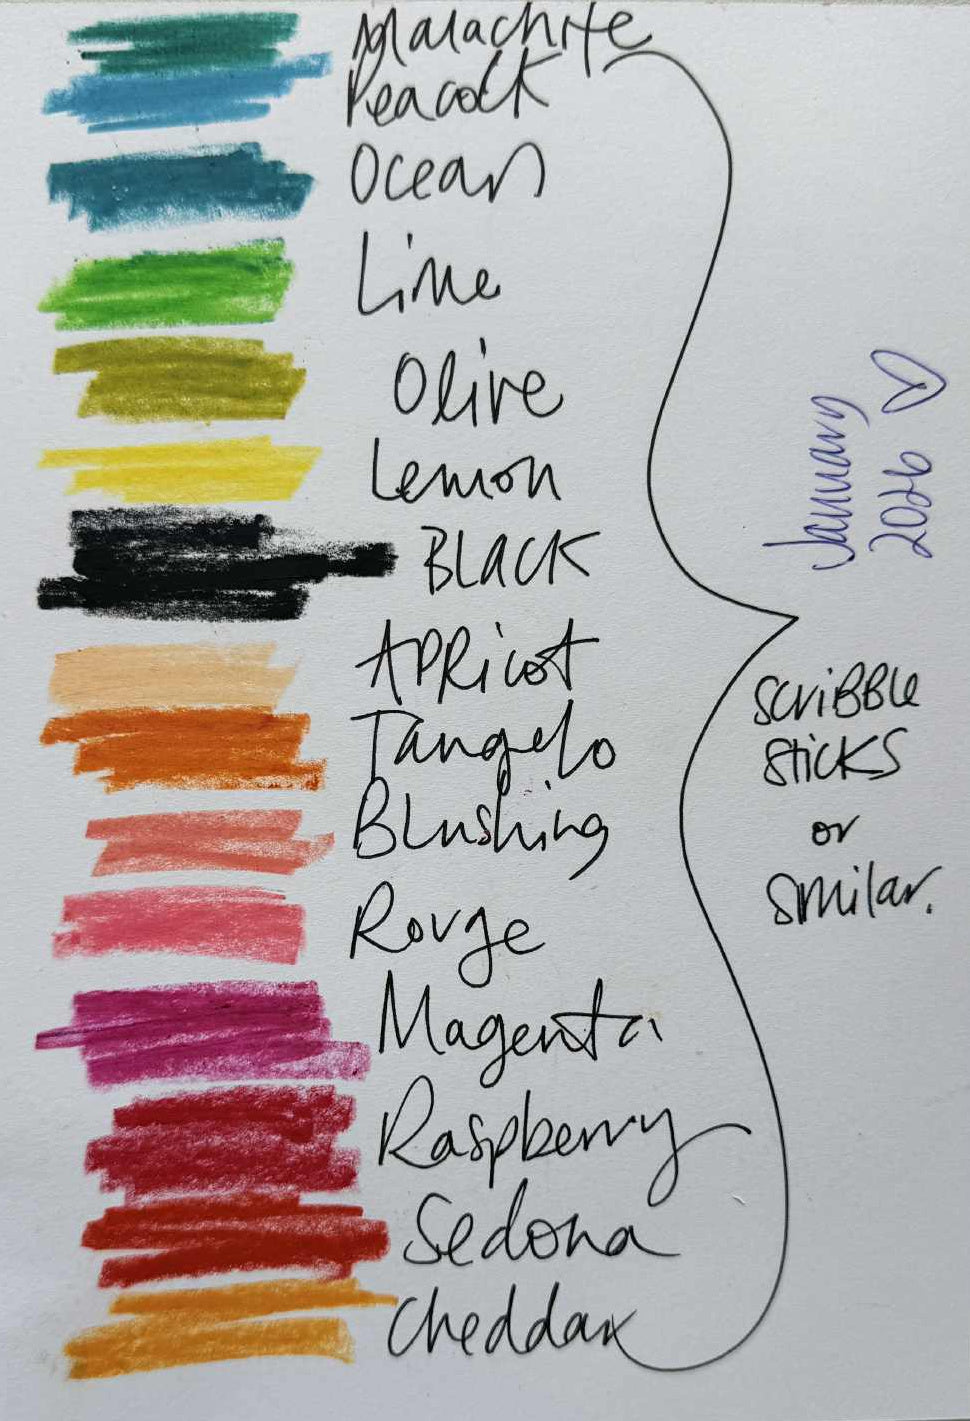 Malachite
Peacock
Ocean
Lime
Olive
Lemon
BLACK
APRicot
Tangelo
Blushing
Rouge
Magenta
Raspberry
Sedona
Cheddar
scriBBle
sticks
or
similar.
January
2026